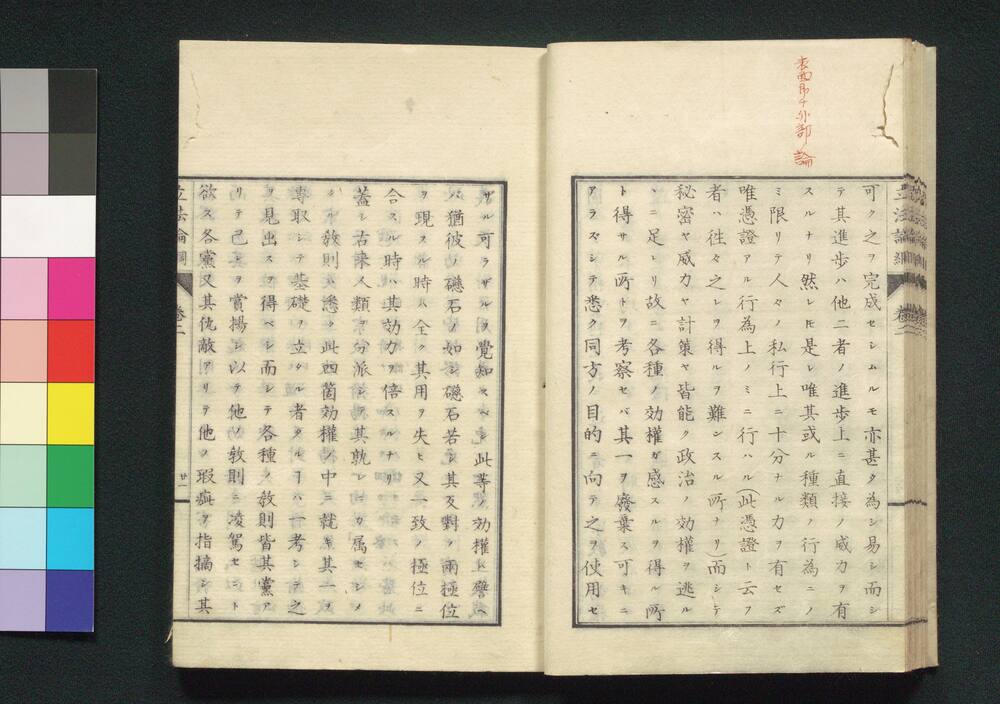 可ク之ヲ完成セシムルモ亦甚タ為シ易シ而シ
テ其進歩ハ他二者ノ進歩上ニ直接ノ威力ヲ有
スルナリ然レ𪜈是レ唯其或ル種類ノ行為ニノ
ミ限リテ人々ノ私行上ニ十分ナル力ヲ有セズ
唯憑證アル行為上ノミニ行ハル(此憑證ト云フ
者ハ徃々之レヲ得ルヲ難ンスル所ナリ)而シテ
秘密ヤ威力ヤ計策ヤ皆能ク政治ノ効權ヲ逃ル
ヽニ足レリ故ニ各種ノ効權ガ感スルヲ得ル所
ト得サル所トヲ考察セバ其一ヲ廢棄ス可キニ
アラズシテ悉ク同方ノ目的ニ向テ之ヲ使用セ
立法論綱
卷二
ザル可ラザルヲ覺知スベシ此等ノ効權ハ譬ヘ
バ猶彼ノ礠石ノ如シ礠石若シ其反對ノ兩極位
ヲ現スル時ハ全ク其用ヲ失ヒ又一致ノ極位ニ
合スル時ハ其効力ヲ倍スルナリ
蓋シ古来人類ヲ分派シテ其孰レニカ属セシメ
タル敎則ハ悉ク此四箇効權ノ中ニ就キ其一ヲ
專取シテ基礎ヲ立タル者タルヿハ一考シテ之
ヲ見出スヲ得ベシ而シテ各種ノ敎則皆其黨ア
リテ己レヲ賞揚シ以テ他ノ敎則ニ凌駕セント
欲ス各黨又其仇敵アリテ他ノ瑕疵ヲ指摘シ其
立法論綱
卷二
廿一